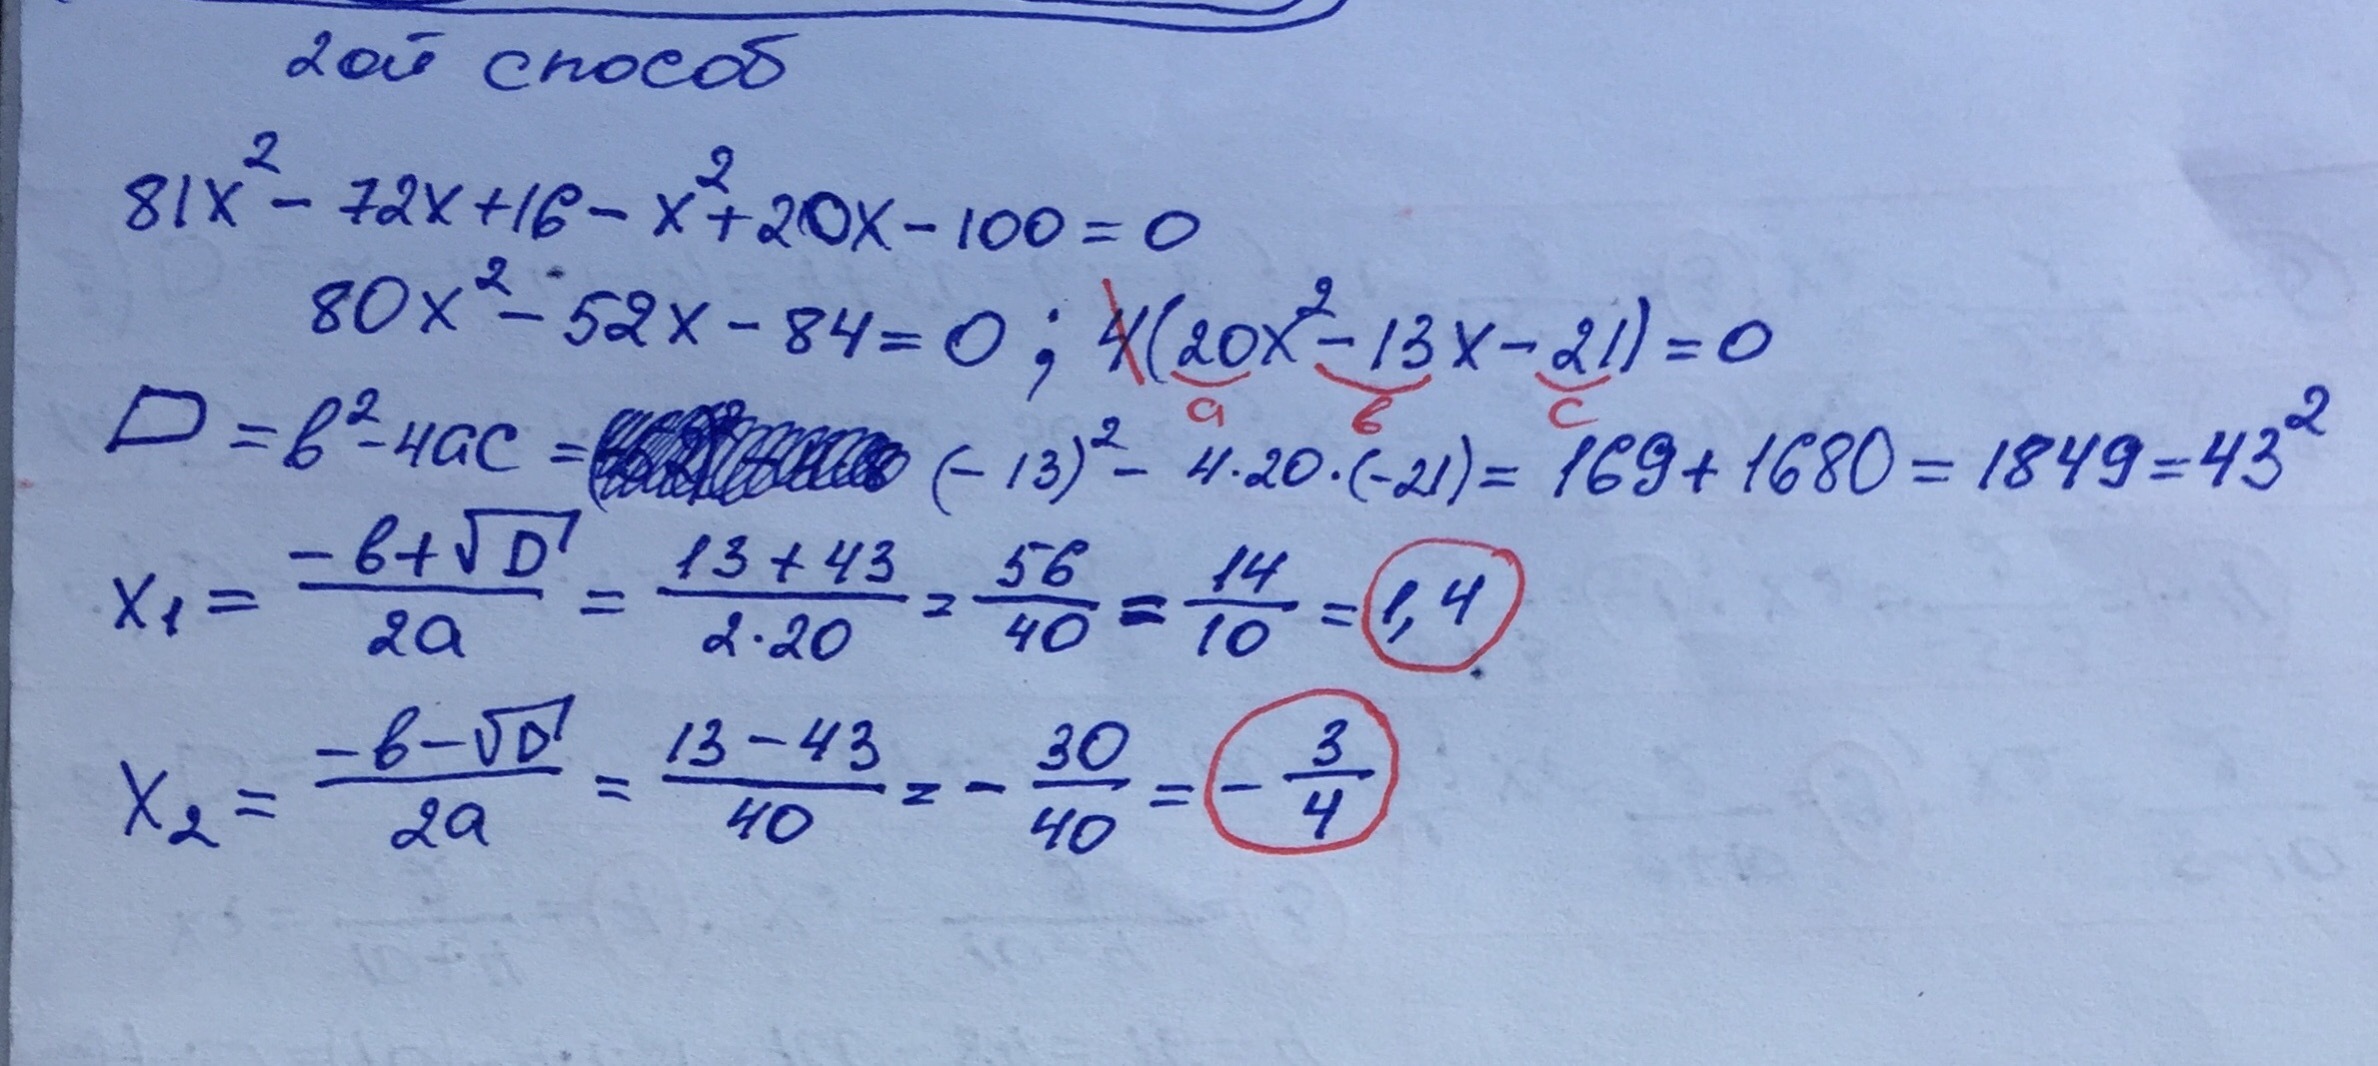 2ой способ
81x² - 72x + 16 - x² + 20x - 100 = 0
80x² - 52x - 84 = 0 ; 4(20x² - 13x - 21) = 0
a в c
D = в² - 4ac = (-13)² - 4·20·(-21) = 169 + 1680 = 1849 = 43²
x₁ = (-в + √D)/(2a) = (13 + 43)/(2·20) = 56/40 = 14/10 = 1,4
x₂ = (-в - √D)/(2a) = (13 - 43)/40 = - 30/40 = - 3/4